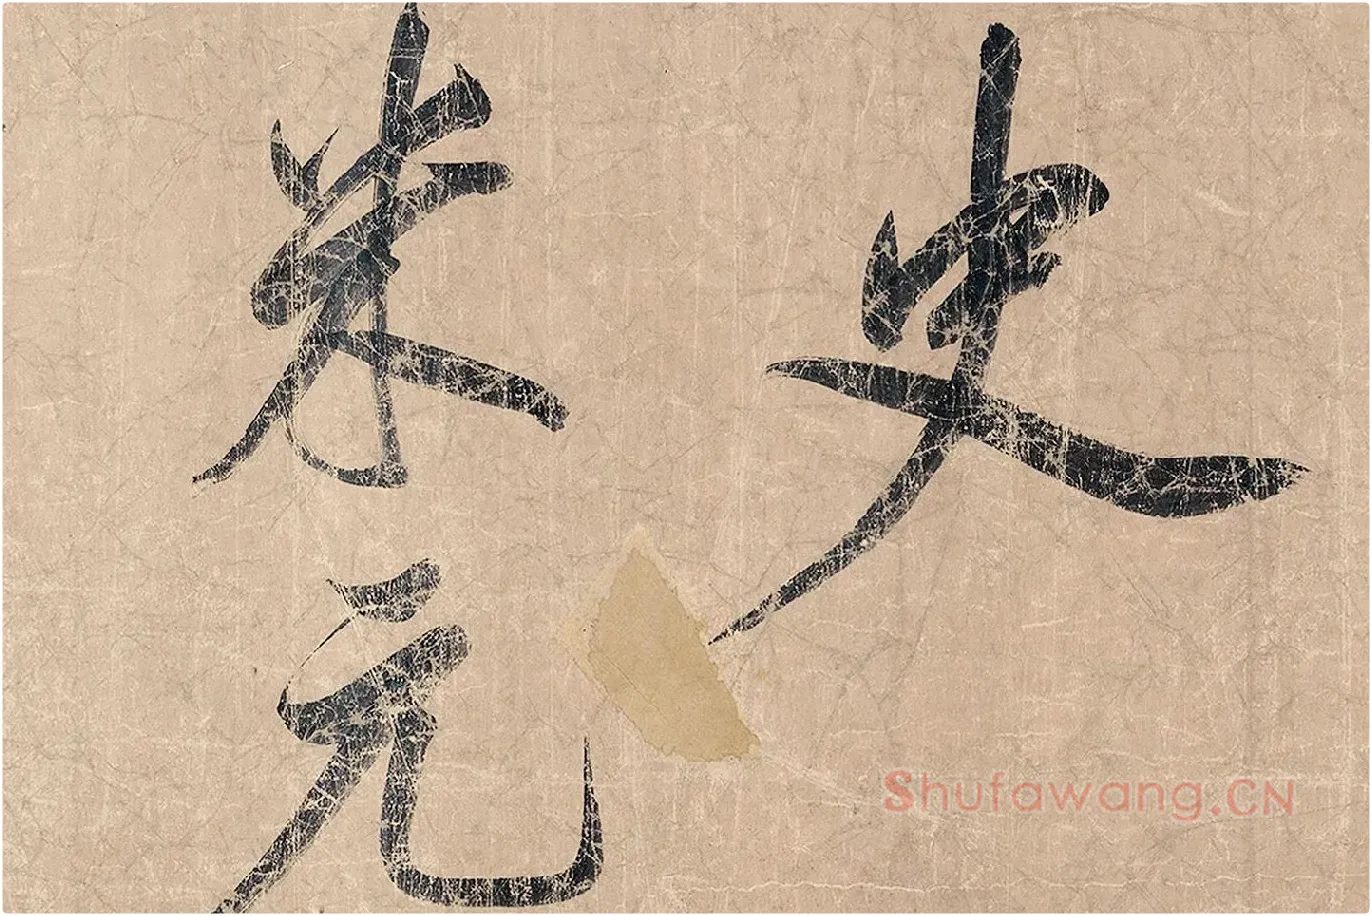 史
朱元
Shufawang.CN